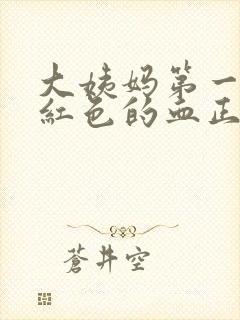 大姨妈第一
红色的血正
蒼井空